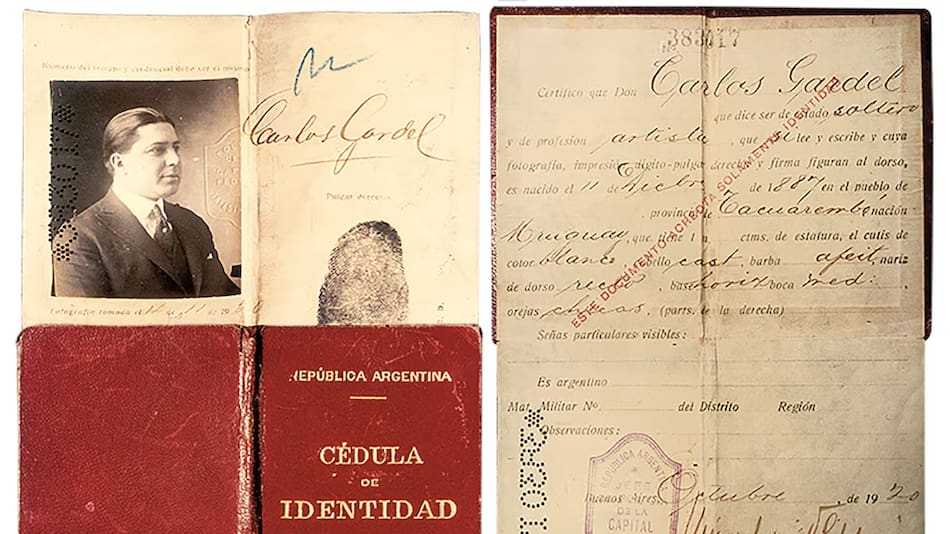 Número del retrato y credencial debe ser el mismo
Carlos Gardel
Pulgar derecho
Fotografía tomada el 12 de 11 de 1920
REPÚBLICA ARGENTINA
CÉDULA
DE
IDENTIDAD
No 383017
Certifico que Don Carlos Gardel
que dice ser de estado soltero
y de profesión artista, que si lee y escribe y cuya
fotografía, impresión dígito-pulgar derecha y firma figuran al dorso,
es nacido el 11 de Dicbre de 1887 en el pueblo de
, provincia de Tacuarembo nación
Uruguay, que tiene 1 m. ctms. de estatura, el cutis de
color blanco cabello cast., barba afeit. nariz
de dorso rect. base horiz. boca med.
orejas chicas, (parts. de la derecha)
ESTE DOCUMENTO ACREDITA SOLAMENTE IDENTIDAD
Señas particulares visibles:
Es argentino
Mat. Militar No. del Distrito Región
Observaciones:
REPÚBLICA ARGENTI
JEFE
DE LA
CAPITAL
Buenos Aires, Octubre de 1920